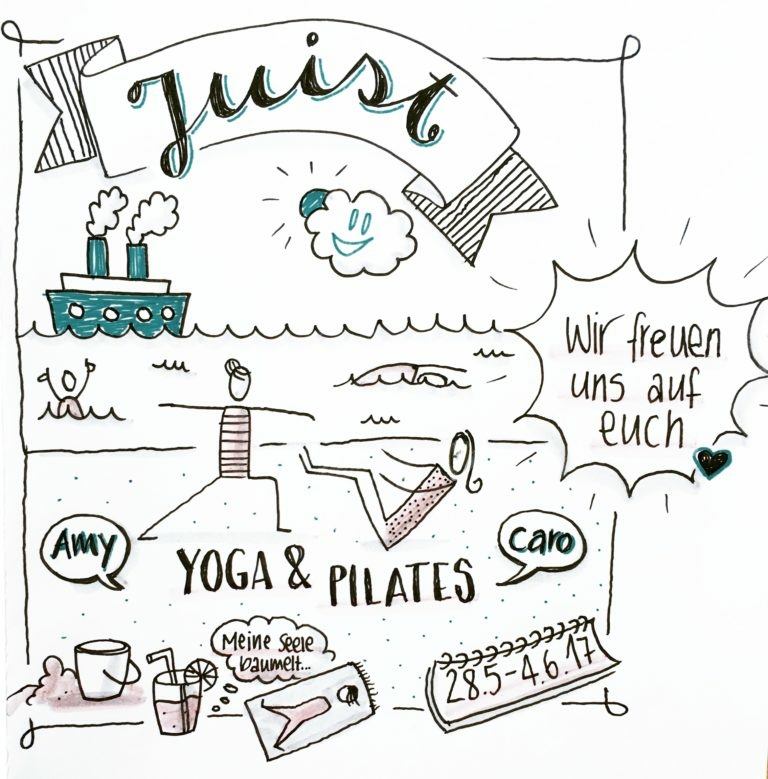 Juist
Wir freuen
uns auf
euch
Amy
Caro
YOGA & PILATES
Meine Seele
baumelt...
28.5-4.6.17